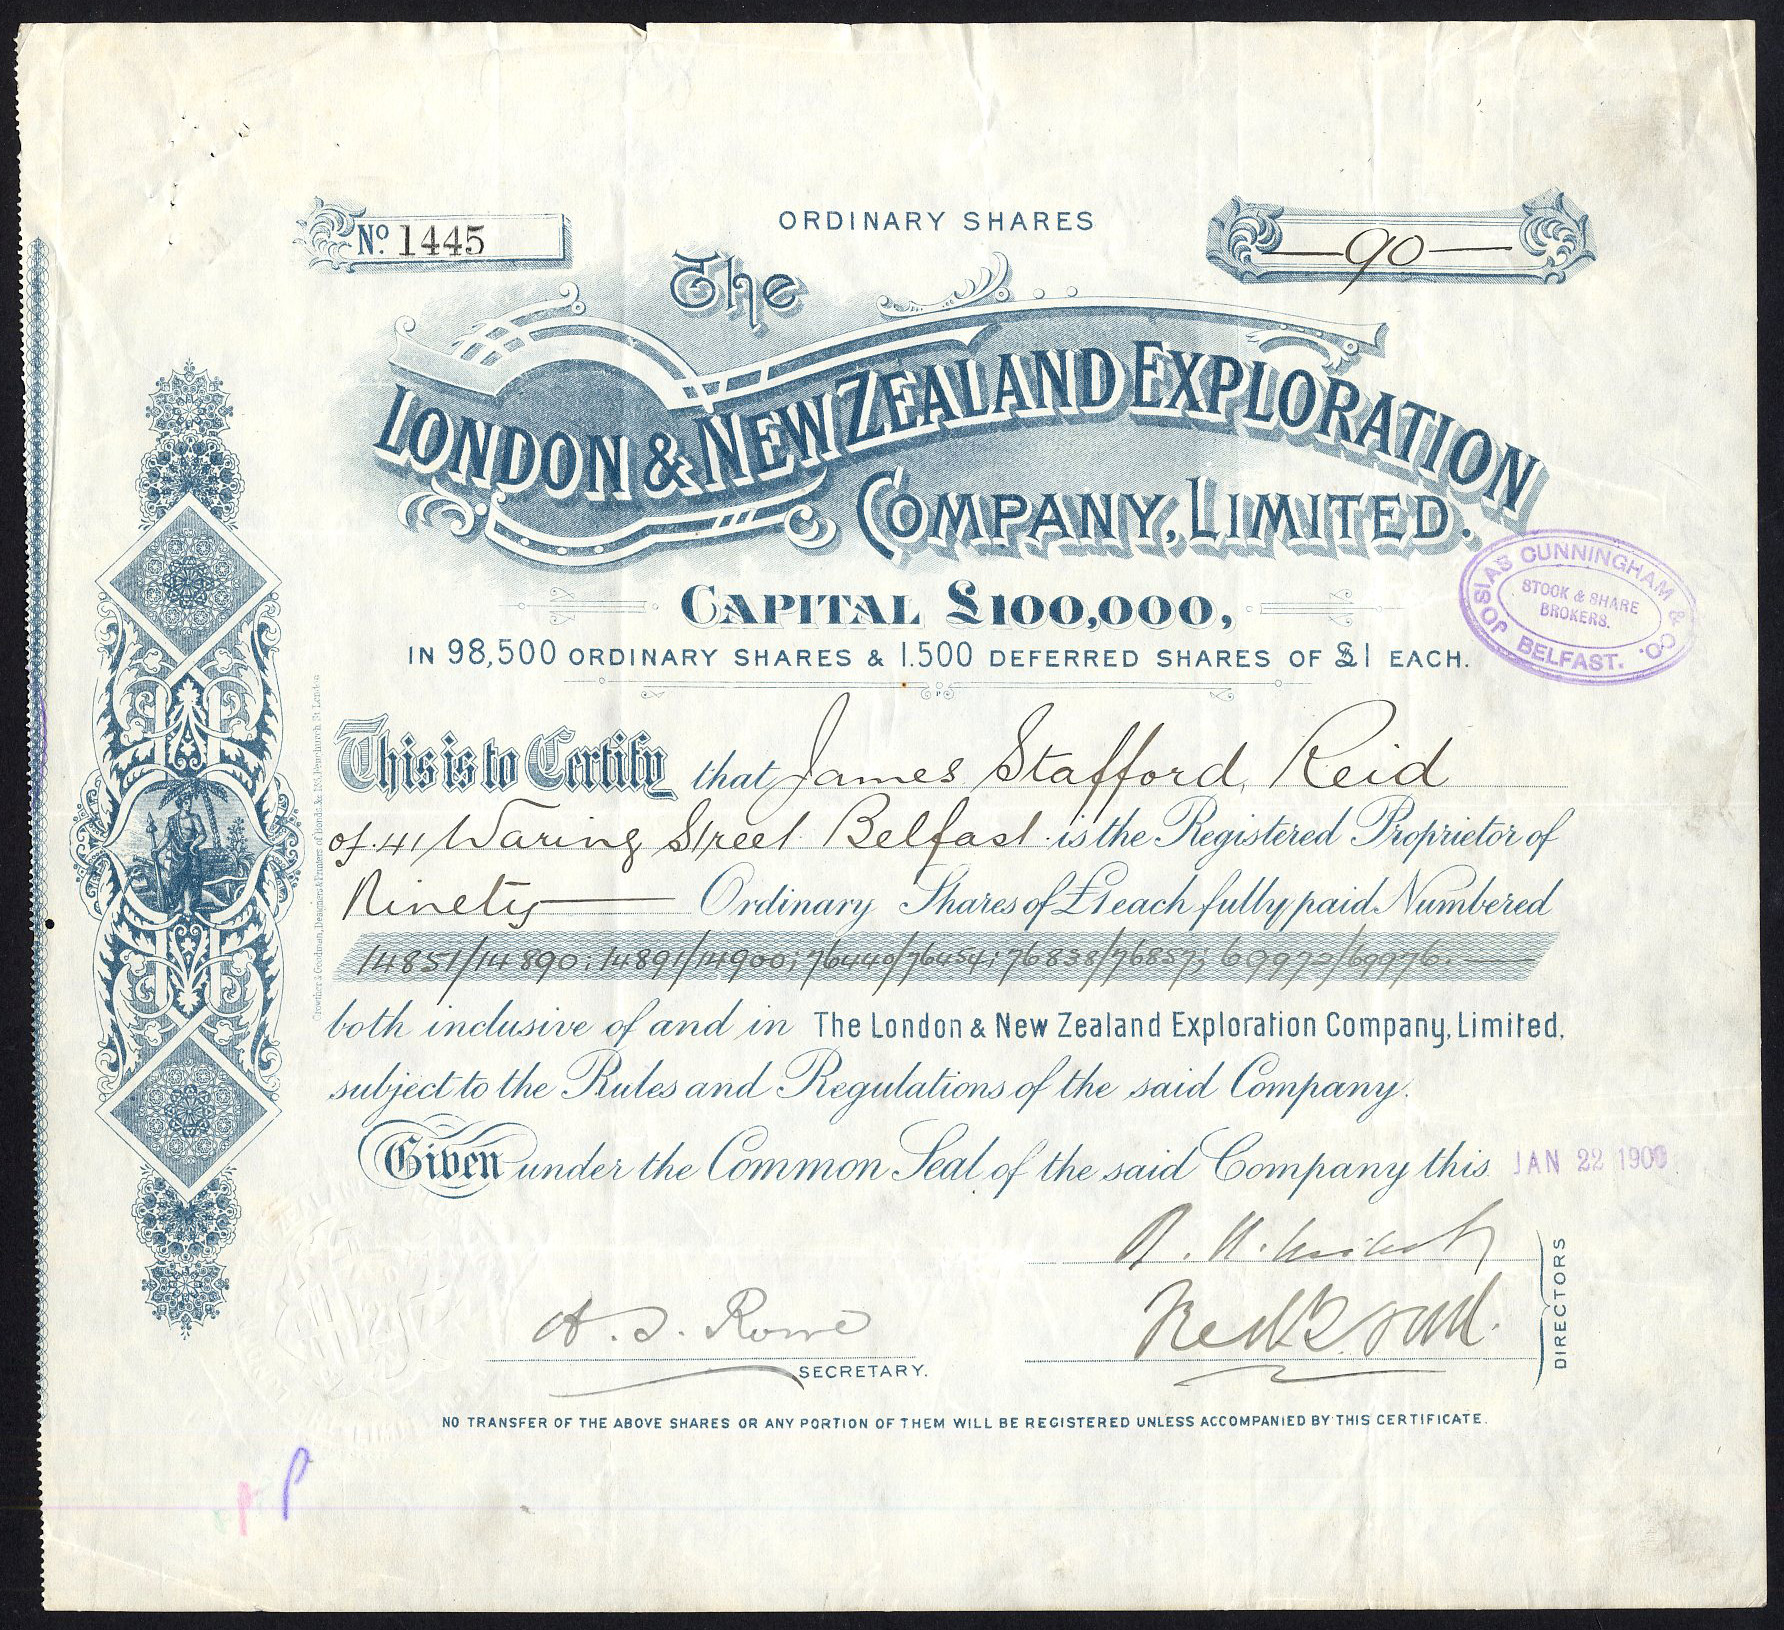 ORDINARY SHARES
No. 1445
90
The
LONDON & NEW ZEALAND EXPLORATION
COMPANY, LIMITED.
CAPITAL £100,000,
IN 98,500 ORDINARY SHARES & 1.500 DEFERRED SHARES OF £1 EACH.
JOSIAS CUNNINGHAM & CO.
STOCK & SHARE
BROKERS.
BELFAST.
This is to Certify that James Stafford Reid
of 41 Waring Street Belfast is the Registered Proprietor of
Ninety Ordinary Shares of £1 each fully paid Numbered
14851/14890; 14891/14900; 76440/76454; 76838/76857; 69972/69976.
both inclusive of and in The London & New Zealand Exploration Company, Limited,
subject to the Rules and Regulations of the said Company.
Given under the Common Seal of the said Company this JAN 22 1900
A. S. Rowe
SECRETARY.
DIRECTORS
NO TRANSFER OF THE ABOVE SHARES OR ANY PORTION OF THEM WILL BE REGISTERED UNLESS ACCOMPANIED BY THIS CERTIFICATE.
Crowther & Goodman, Designers & Printers of Bonds &c 123, Fenchurch St London
P P